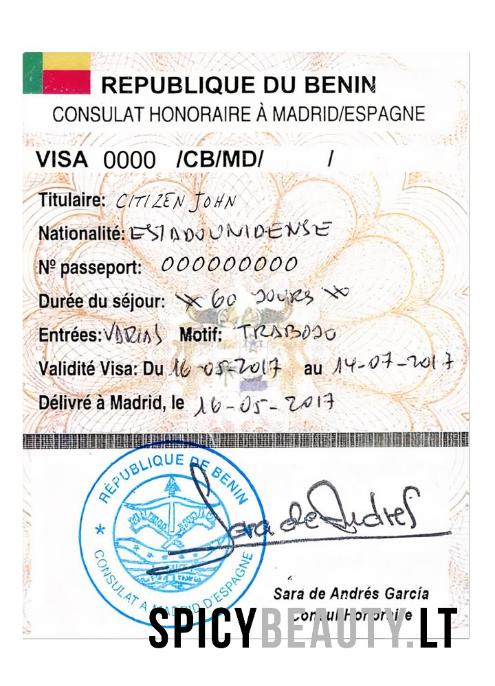 REPUBLIQUE DU BENIN
CONSULAT HONORAIRE À MADRID/ESPAGNE
VISA 0000 /CB/MD/ /
Titulaire: CITIZEN JOHN
Nationalité: ESTADOUNIDENSE
Nº passeport: 000000000
Durée du séjour: 60 JOURS
Entrées: VARIAS Motif: TRABAJO
Validité Visa: Du 16-05-2017 au 14-07-2017
Délivré à Madrid, le 16-05-2017
RÉPUBLIQUE DE BENIN
CONSULAT A MADRID D'ESPAGNE
Sara de Andrés
Sara de Andrés García
Consul Honoraire
SPICYBEAUTY.LT